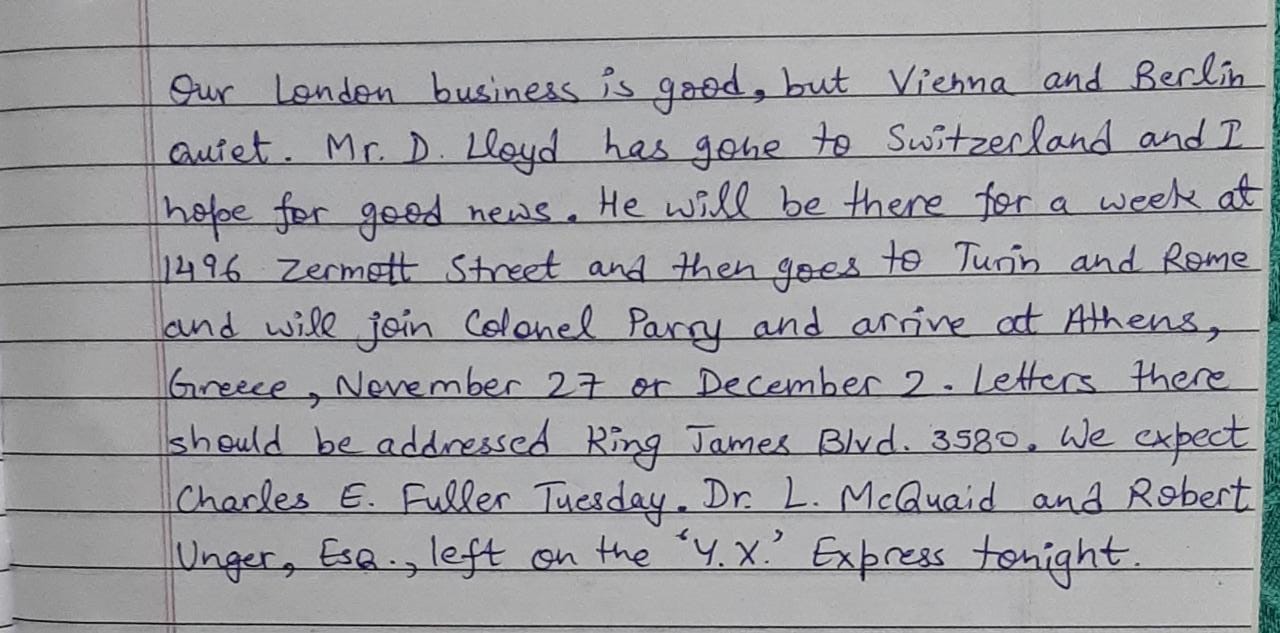 Our London business is good, but Vienna and Berlin
quiet. Mr. D. Lloyd has gone to Switzerland and I
hope for good news. He will be there for a week at
1496 Zermott Street and then goes to Turin and Rome
and will join Colonel Parry and arrive at Athens,
Greece, November 27 or December 2. Letters there
should be addressed King James Blvd. 3580. We expect
Charles E. Fuller Tuesday. Dr. L. McQuaid and Robert
Unger, Esq., left on the 'Y.X.' Express tonight.